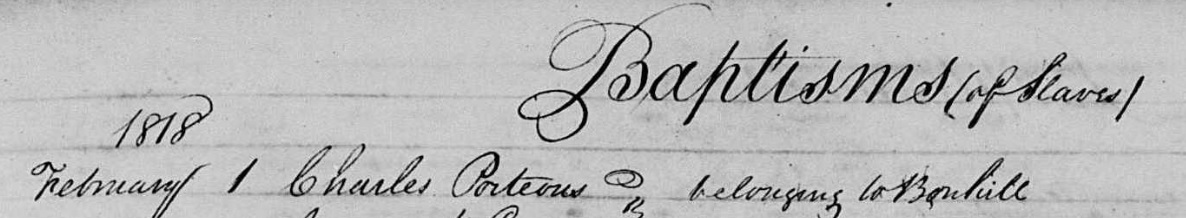 Baptisms (of Slaves)
1818
February 1 Charles Porteous belonging to Bonhill